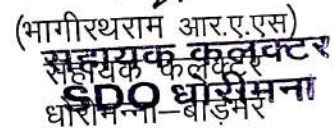 (भागीरथराम आर.ए.एस)
सहायक कलक्टर
सहायक कलक्टर
SDO धोरीमना
धोरीमन्ना–बाड़मेर